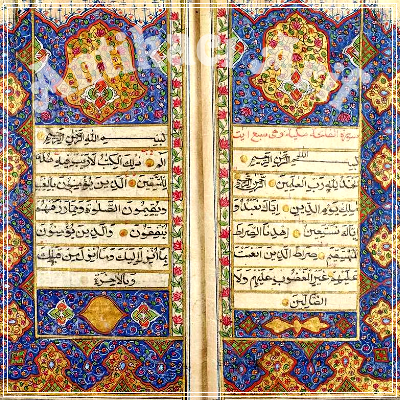 سورة الفاتحه مكيه وهي سبع ايت
بسم الله الرحمن الرحيم
الحمد لله رب العلمين الرحمن الرحيم
ملك يوم الدين اياك نعبد و
اياك نستعين اهدنا الصراط
المستقيم صراط الذين انعمت
عليهم غير المغضوب عليهم ولا
الضالين
بسم الله الرحمن الرحيم
الم ذلك الكتب لا ريب فيه هدى
للمتقين الذين يؤمنون بالغيب
ويقيمون الصلوة ومما رزقنهم
ينفقون والذين يؤمنون
بما انزل اليك وما انزل من قبلك
وبالاخرة